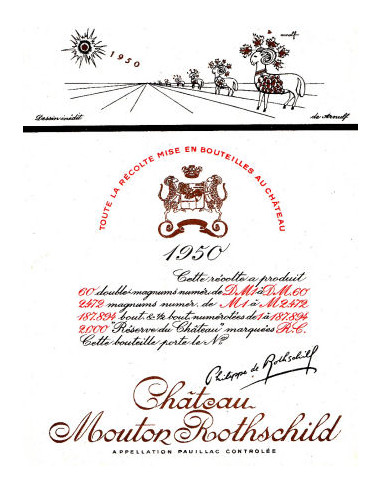 arnulf
1950
Dessin inédit
de Arnulf
TOUTE LA RÉCOLTE MISE EN BOUTEILLES AU CHÂTEAU
1950
Cette récolte a produit
60 double magnums numér. de D.M.1 à D.M.60
2472 magnums numér. de M1 à M2472
187.894 bout. & ½ bout. numérotées de 1 à 187.894
2.000 "Réserve du Château" marquées R.C.
Cette bouteille porte le No.
Philippe de Rothschild
Château
Mouton Rothschild
APPELLATION PAUILLAC CONTROLÉE